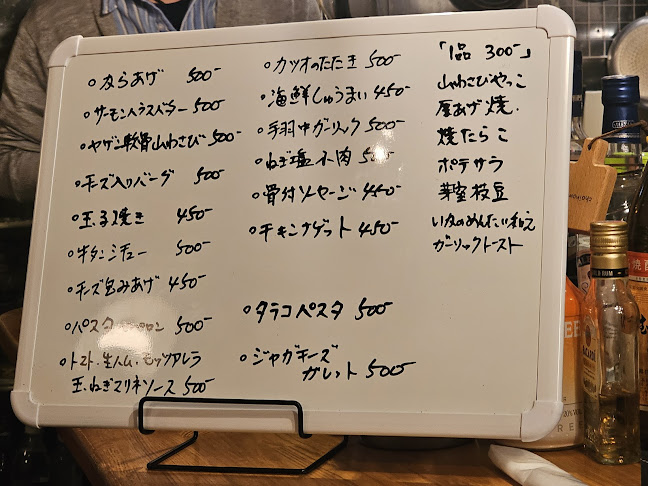 。からあげ 500-
。サーモンハラスバター 500-
。ヤゲン軟骨山わさび 500-
。チーズ入りバーグ 500-
。玉子焼き 450-
。牛タンシチュー 500-
。チーズ包みあげ 450-
。パスタ 500-
。トマト・生ハム・モッツアレラ
玉ねぎマリネソース 500-
。カツオのたたき 500-
。海鮮しゅうまい 450-
。手羽中ガーリック 500-
。ねぎ塩 肉 500-
。骨付ソーセージ 450-
。チキンナゲット 450-
。タラコパスタ 500-
。ジャガチーズ
ガレット 500-
「1品 300-」
山わさびやっこ
厚あげ焼・
焼たらこ
ポテサラ
芽室枝豆
いかのめんたい和え
ガーリックトースト